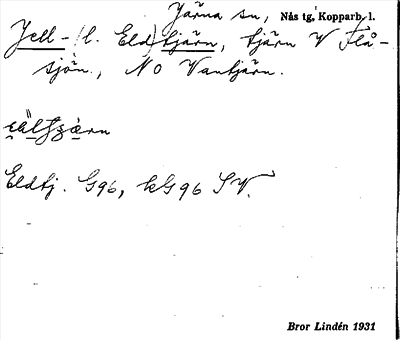 Järna sn, Nås tg, Kopparb. l.
Jell- (l. Eld)tjärn, tjärn V Flå-
sjön, NO Vantjärn.
Eldtj. G96, kG96 SV.
Bror Lindén 1931